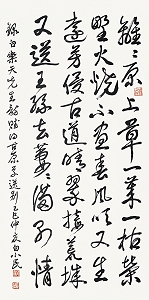 離〻原上草一歲一枯榮
野火燒不盡春風吹又生
遠芳侵古道晴翠接荒城
又送王孫去萋〻滿別情
錄白樂天先生賦得古原草送別 仲夏白小